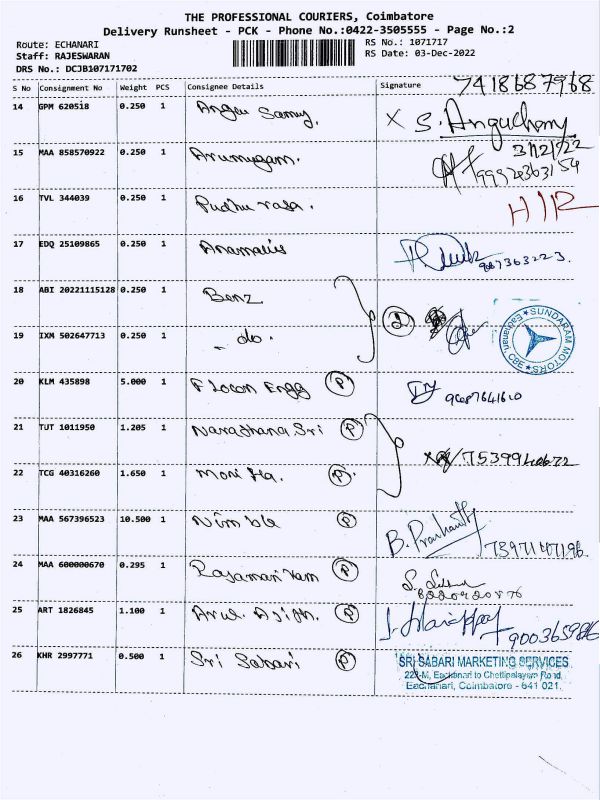 THE PROFESSIONAL COURIERS, Coimbatore
Delivery Runsheet - PCK - Phone No.:0422-3505555 - Page No.:2
Route: ECHANARI
Staff: RAJESWARAN
DRS No.: DCJB107171702
RS No.: 1071717
RS Date: 03-Dec-2022
S No Consignment No Weight PCS Consignee Details Signature 7418687968
14 GPM 620518 0.250 1 Angu Samy. X S. Anguchamy
15 MAA 858570922 0.250 1 Arumugam. 3/12/22 9952363154
16 TVL 344039 0.250 1 Pudhu rasa.
17 EDQ 25109865 0.250 1 Anamalis
18 ABI 20221115128 0.250 1 Benz
SUNDARAM MOTORS Eachanari CBE
19 IXM 502647713 0.250 1 - do. 2
20 KLM 435898 5.000 1 Flocon Engg P 9087641610
21 TUT 1011950 1.205 1 Naradhana Sri P
22 TCG 40316260 1.650 1 P
23 MAA 567396523 10.500 1 Nimble P B. Prashanth 7397147196
24 MAA 600000670 0.295 1 P 8220420876
25 ART 1826845 1.100 1 Arul Ajith. P
26 KHR 2997771 0.500 1 Sri Sabari P
SRI SABARI MARKETING SERVICES
22 -M, Eachanari to Chettipalayam Road,
Eachanari, Coimbatore - 641 021.